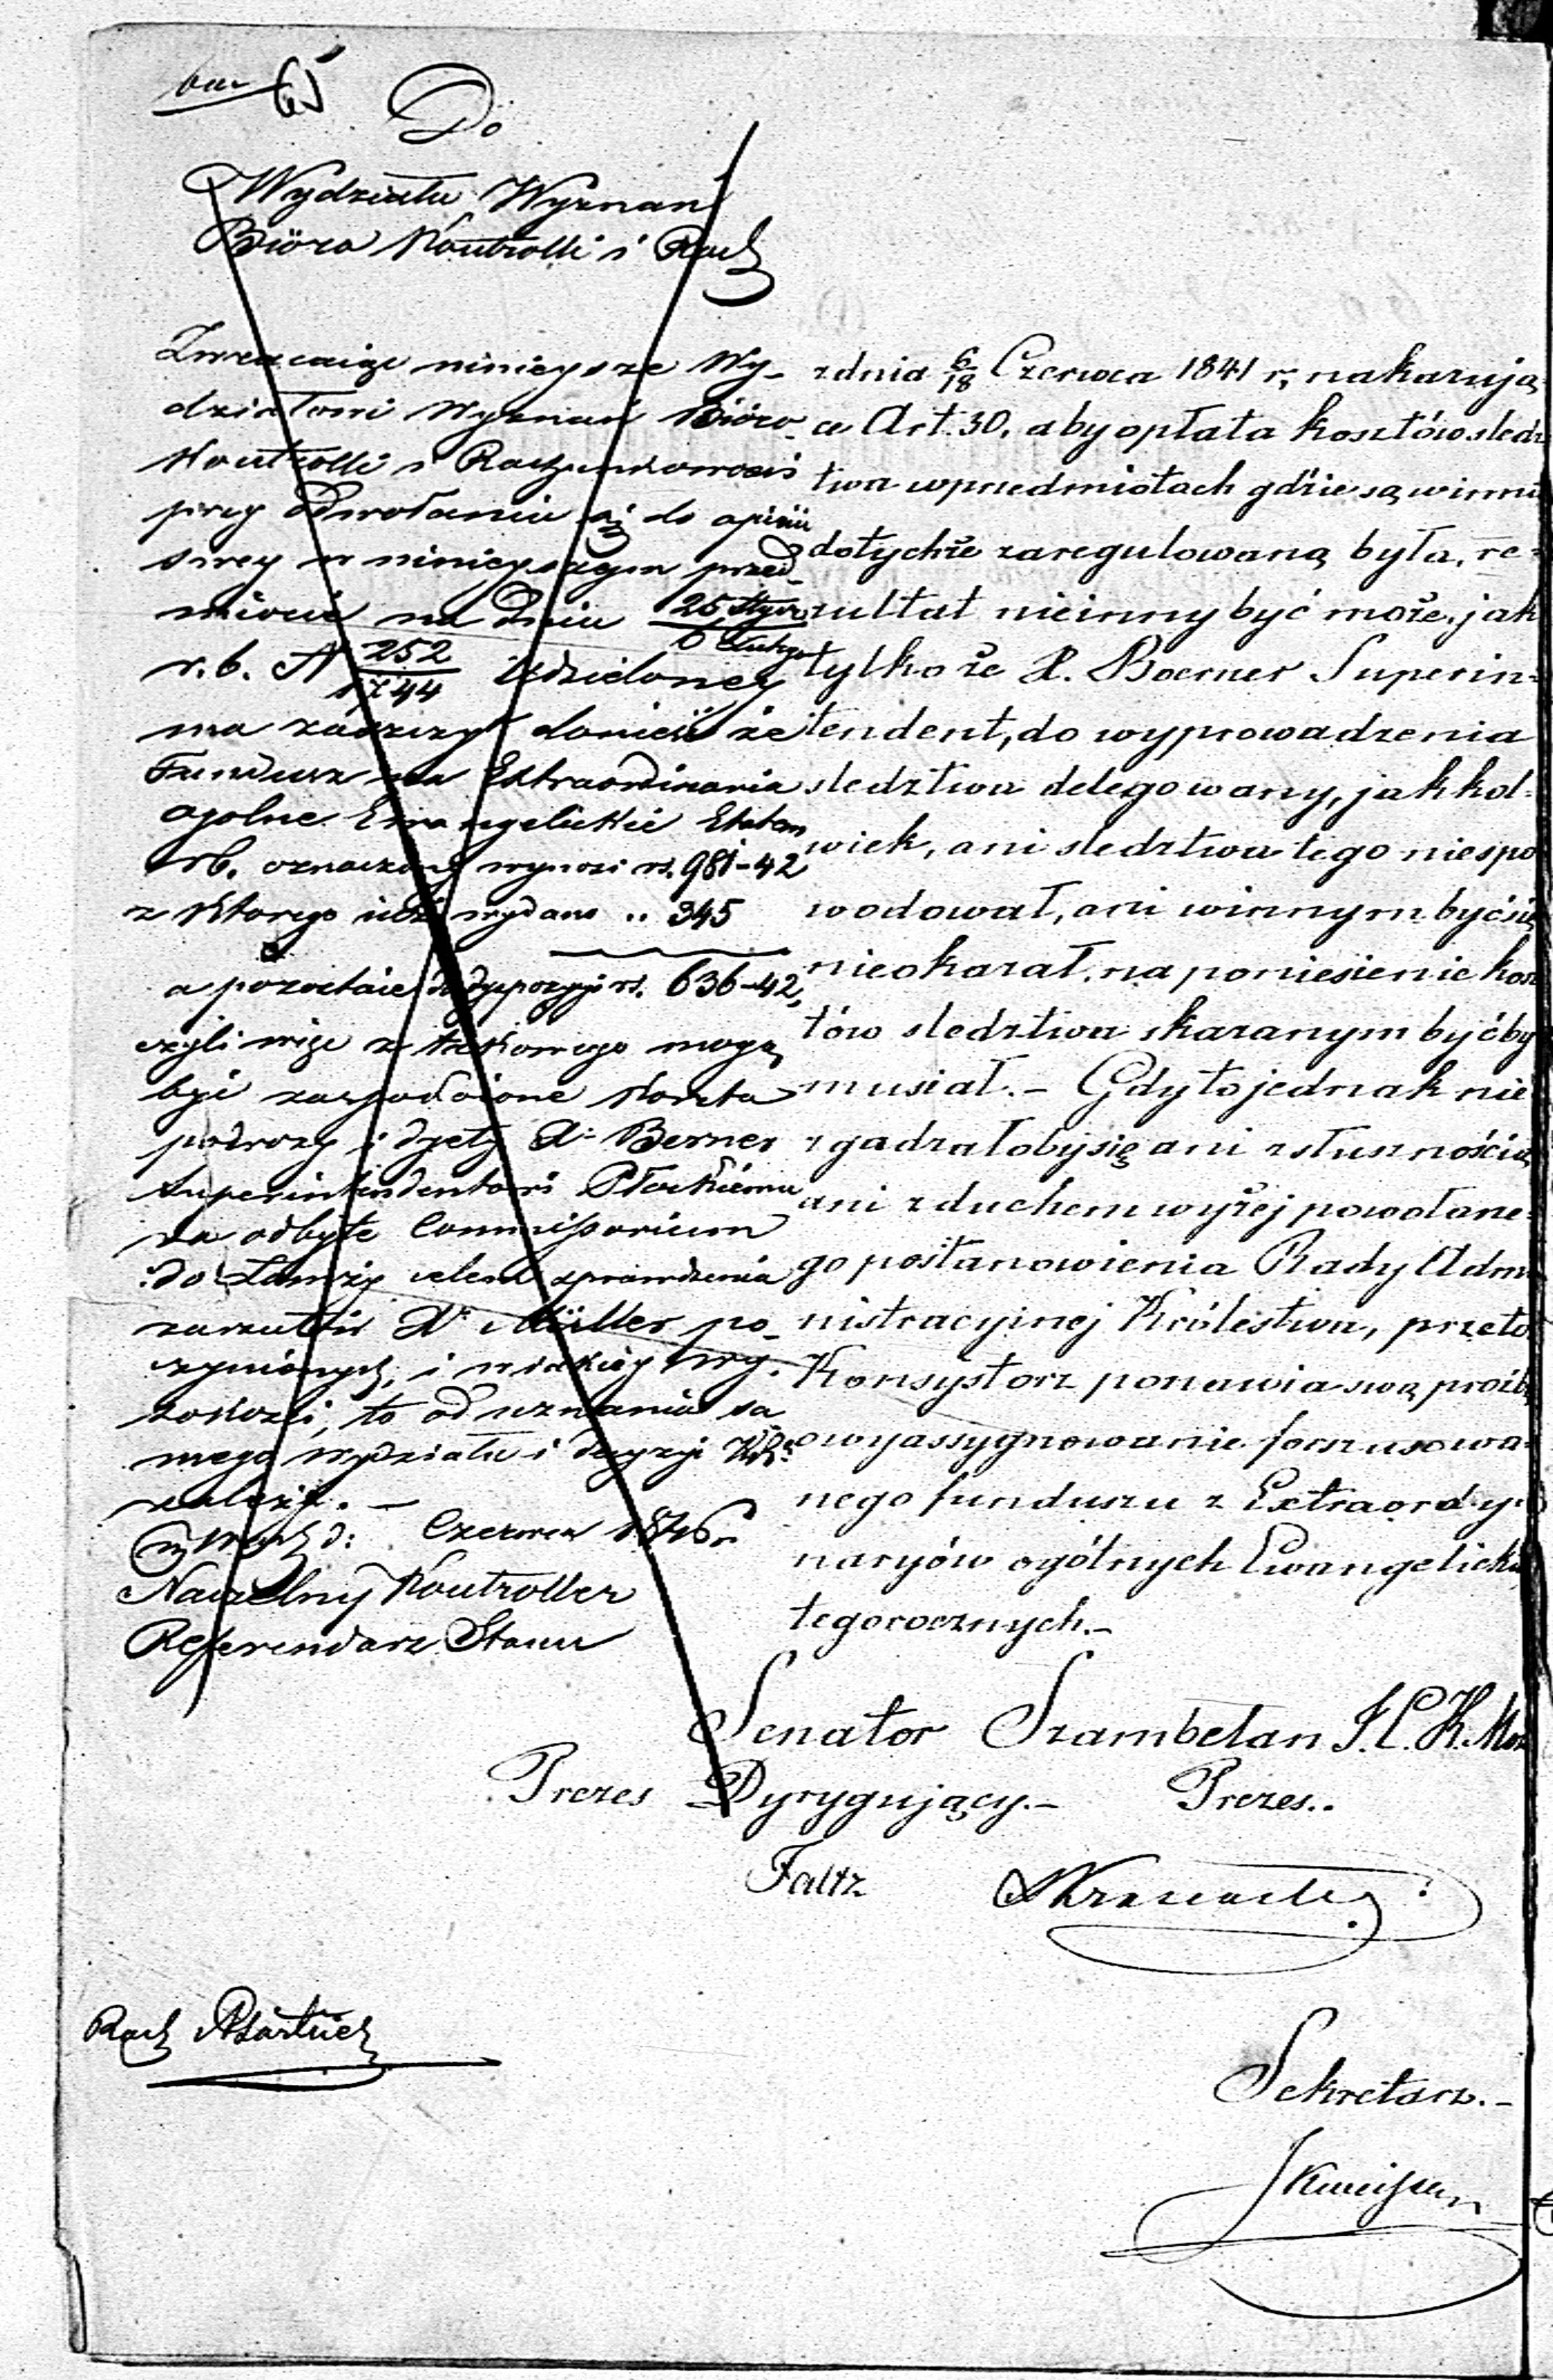 65
Do
Wydziału Wyznań
Bióra Kontrolli i Rach
Zwracaiąc ninieysze Wy-
działowi Wyznań Bióro
Kontrolli i Rachunkowości
przy odwołaniu się do opinii
swey w ninieyszym przed-
miocie na dniu 25 Stycz
6 Lutego
r. b. N 252
1744 udzieloney
ma zaszczyt donieść że
Fundusz na Extraordinaria
ogolne Ewangelickie Etatem
rb. oznaczony wynosi rs. 981-42
z którego już wydano .. 345
a pozostaie do dyspozycyi rs. 636-42,
czyli więc z takowego mogą
być zaspokoione koszta
podrozy i dyety X. Berner
Superintendentowi Płockiemu
za odbyte Commissorium
do Łomży celem sprawdzenia
zarzutów X. Müller po-
czynionych, i w iakiey wy-
sokości, to od uznania sa
mego wydziału i decyzyi KR
zależy. -
d: Czerwca 1846 r.
Naczelny Kontroller
Referendarz Stanu
z dnia 6/18 Czerwca 1841 r, nakazują
ce Art. 30. aby opłata kosztów śledz
twa w przedmiotach gdzie są winni
dotychże zaregulowaną była, re-
zultat nieinny być może, jak
tylko że X. Boerner Superin-
tendent, do wyprowadzenia
śledztwa delegowany, jakkol-
wiek, ani śledztwa tego niespo
wodował, ani winnym być się
nieokazał, na poniesienie kosz
tów śledztwa skazanym byćby
musiał. - Gdy to jednak nie
zgadzałoby się ani z słusznością
ani z duchem wyżej powołane-
go postanowienia Rady Admi
nistracyjnej Królestwa, przeto
Konsystorz ponawia swą prośbę
o wyassygnowanie forszusowa-
nego funduszu z Extraordy-
naryów ogólnych Ewangelickich
tegorocznych.-
Senator Szambelan J.C.K. Mos
Prezes Dyrygujący.- Prezes..
Faltz
Rach
Sekretarz.-